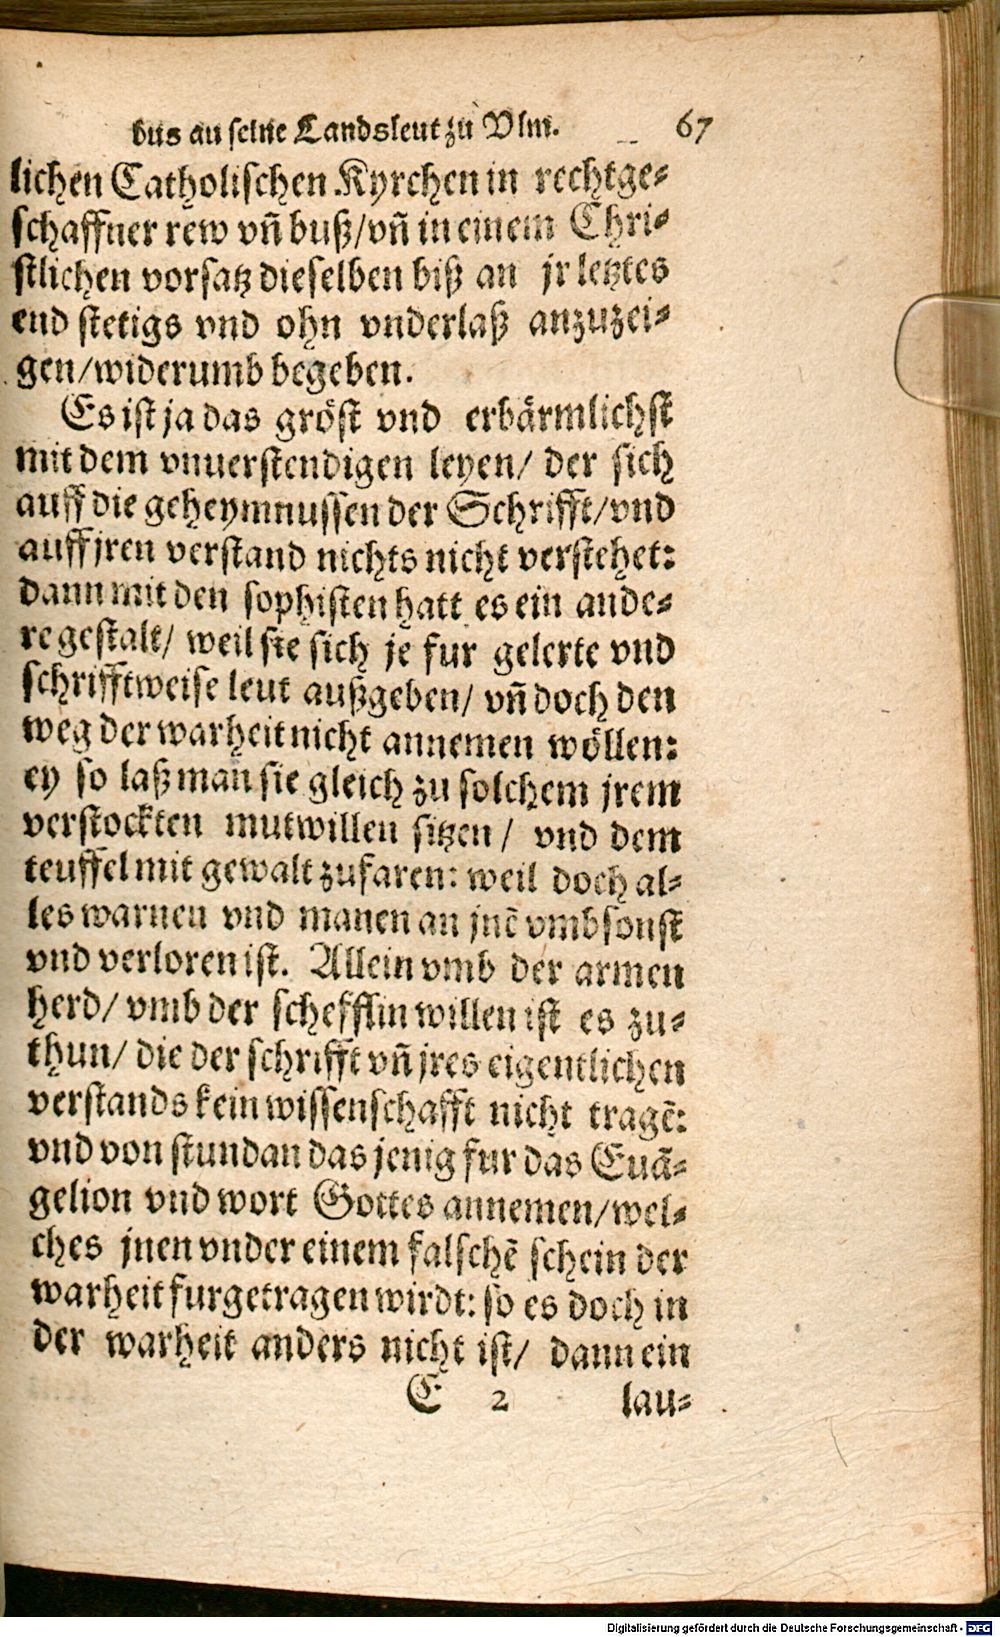 bus an seine Landsleut zu Vlm. 67
lichen Catholischen Kyrchen in rechtge-
schaffner rew vñ buß/vñ in einem Chri-
stlichen vorsatz dieselben biß an jr letztes
end stetigs vnd ohn vnderlaß anzuzei-
gen/widerumb begeben.
Es ist ja das gröst vnd erbärmlichst
mit dem vnuerstendigen leyen/ der sich
auff die geheymnussen der Schrifft/vnd
auff jren verstand nichts nicht verstehet:
dann mit den sophisten hatt es ein ande-
re gestalt/ weil sie sich je fur gelerte vnd
schrifftweise leut außgeben/ vñ doch den
weg der warheit nicht annemen wöllen:
ey so laß man sie gleich zu solchem jrem
verstockten mutwillen sitzen/ vnd dem
teuffel mit gewalt zufaren: weil doch al-
les warnen vnd manen an jnẽ vmbsonst
vnd verloren ist. Allein vmb der armen
herd/ vmb der schefflin willen ist es zu-
thun/ die der schrifft vñ jres eigentlichen
verstands kein wissenschafft nicht tragẽ:
vnd von stundan das jenig fur das Euã-
gelion vnd wort Gottes annemen/wel-
ches jnen vnder einem falschẽ schein der
warheit furgetragen wirdt: so es doch in
der warheit anders nicht ist/ dann ein
E 2 lau-
Digitalisierung gefördert durch die Deutsche Forschungsgemeinschaft - DFG